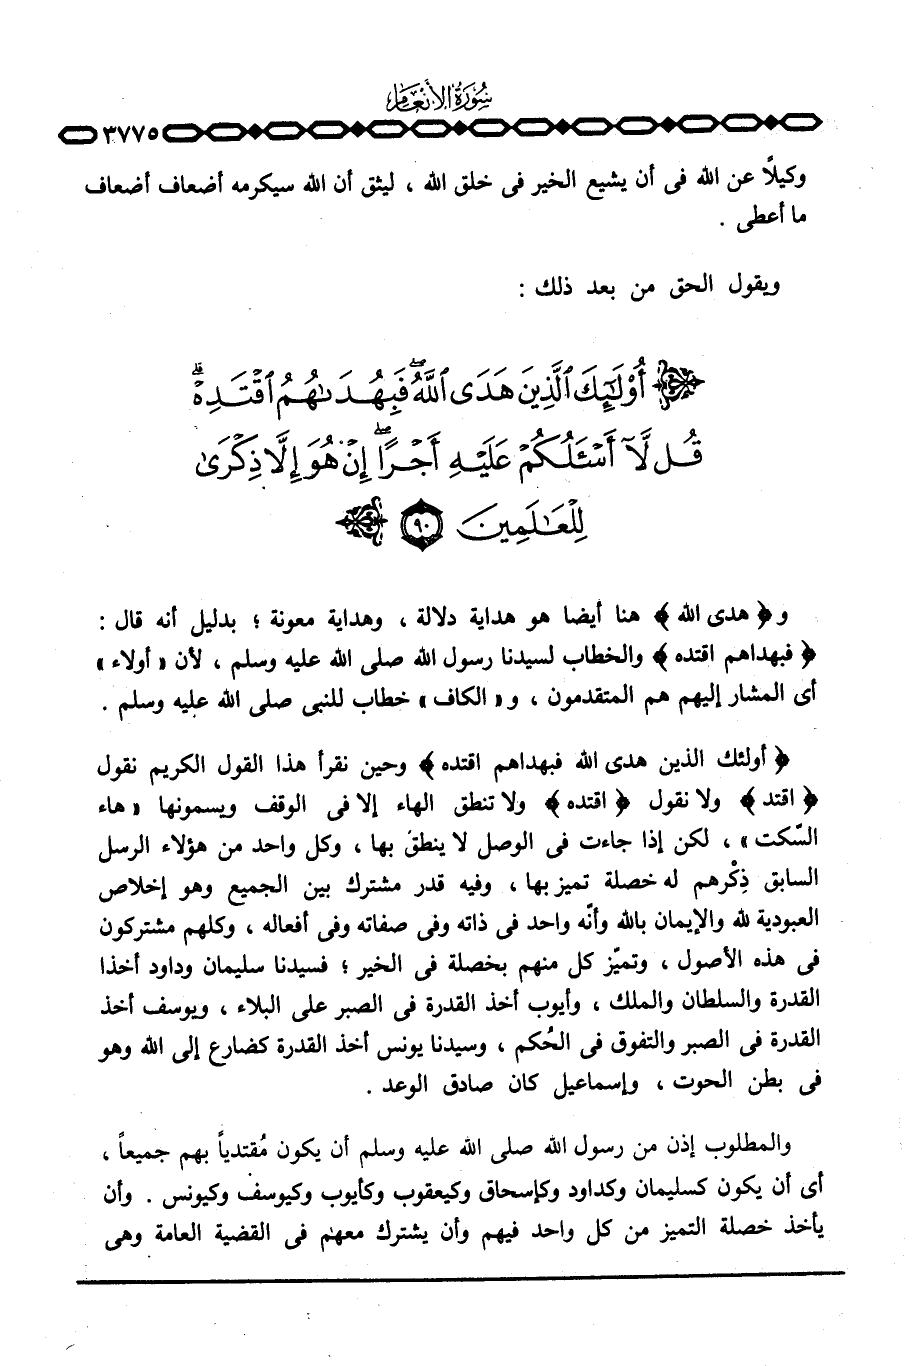 سُورَةُ الأَنْعَام
٣٧٧٥
وكيلاً عن الله فى أن يشيع الخير فى خلق الله ، ليثق أن الله سيكرمه أضعاف أضعاف
ما أعطى .
ويقول الحق من بعد ذلك :
أُوْلَٰٓئِكَ ٱلَّذِينَ هَدَى ٱللَّهُۖ فَبِهُدَىٰهُمُ ٱقْتَدِهْۗ
قُل لَّآ أَسْـَٔلُكُمْ عَلَيْهِ أَجْرًاۖ إِنْ هُوَ إِلَّا ذِكْرَىٰ
لِلْعَـٰلَمِينَ ٩٠
و ﴿ هدى الله ﴾ هنا أيضا هو هداية دلالة ، وهداية معونة ؛ بدليل أنه قال :
﴿ فبهداهم اقتده ﴾ والخطاب لسيدنا رسول الله صلى الله عليه وسلم ، لأن « أولاء »
أى المشار إليهم هم المتقدمون ، و « الكاف » خطاب للنبى صلى الله عليه وسلم .
﴿ أولئك الذين هدى الله فبهداهم اقتده ﴾ وحين نقرأ هذا القول الكريم نقول
﴿ اقتد ﴾ ولا نقول ﴿ اقتده ﴾ ولا تنطق الهاء إلا فى الوقف ويسمونها « هاء
السّكت » ، لكن إذا جاءت فى الوصل لا ينطق بها ، وكل واحد من هؤلاء الرسل
السابق ذِكْرهم له خصلة تميز بها ، وفيه قدر مشترك بين الجميع وهو إخلاص
العبودية لله والإيمان بالله وأنّه واحد فى ذاته وفى صفاته وفى أفعاله ، وكلهم مشتركون
فى هذه الأصول ، وتميّز كل منهم بخصلة فى الخير ؛ فسيدنا سليمان وداود أخذا
القدرة والسلطان والملك ، وأيوب أخذ القدرة فى الصبر على البلاء ، ويوسف أخذ
القدرة فى الصبر والتفوق فى الحُكم ، وسيدنا يونس أخذ القدرة كضارع إلى الله وهو
فى بطن الحوت ، وإسماعيل كان صادق الوعد .
والمطلوب إذن من رسول الله صلى الله عليه وسلم أن يكون مُقتدياً بهم جميعاً ،
أى أن يكون كسليمان وكداود وكإسحاق وكيعقوب وكأيوب وكيوسف وكيونس . وأن
يأخذ خصلة التميز من كل واحد فيهم وأن يشترك معهم فى القضية العامة وهى